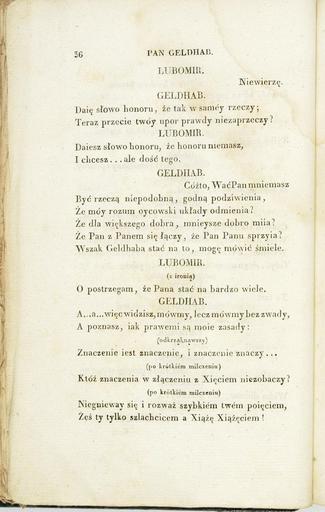 56 PAN GELDHAB.
LUBOMIR.
Niewierzę.
GELDHAB.
Daię słowo honoru, że tak w saméy rzeczy;
Teraz przecie twóy upor prawdy niezaprzeczy?
LUBOMIR.
Daiesz słowo honoru, że honoru niemasz,
I chcesz...ale dość tego.
GELDHAB.
Cóżto, WaćPan mniemasz
Być rzeczą niepodobną, godną podziwienia,
Że móy rozum oycowski układy odmienia?
Że dla większego dobra, mnieysze dobro miia?
Że Pan z Panem się łączy, że Pan Panu sprzyia?
Wszak Geldhaba stać na to, mogę mówić śmiele.
LUBOMIR.
(z ironią)
O postrzegam, że Pana stać na bardzo wiele.
GELDHAB.
A...a...więc widzisz, mówmy, lecz mówmy bez zwady,
A poznasz, iak prawemi są moie zasady:
(odkrząknąwszy)
Znaczenie iest znaczenie, i znaczenie znaczy...
(po krótkiém milczeniu)
Któż znaczenia w złączeniu z Xięciem niezobaczy?
(po krótkiém milczeniu)
Niegnieway się i rozważ szybkiém twém poięciem,
Żeś ty tylko szlachcicem a Xiążę Xiążęciem!